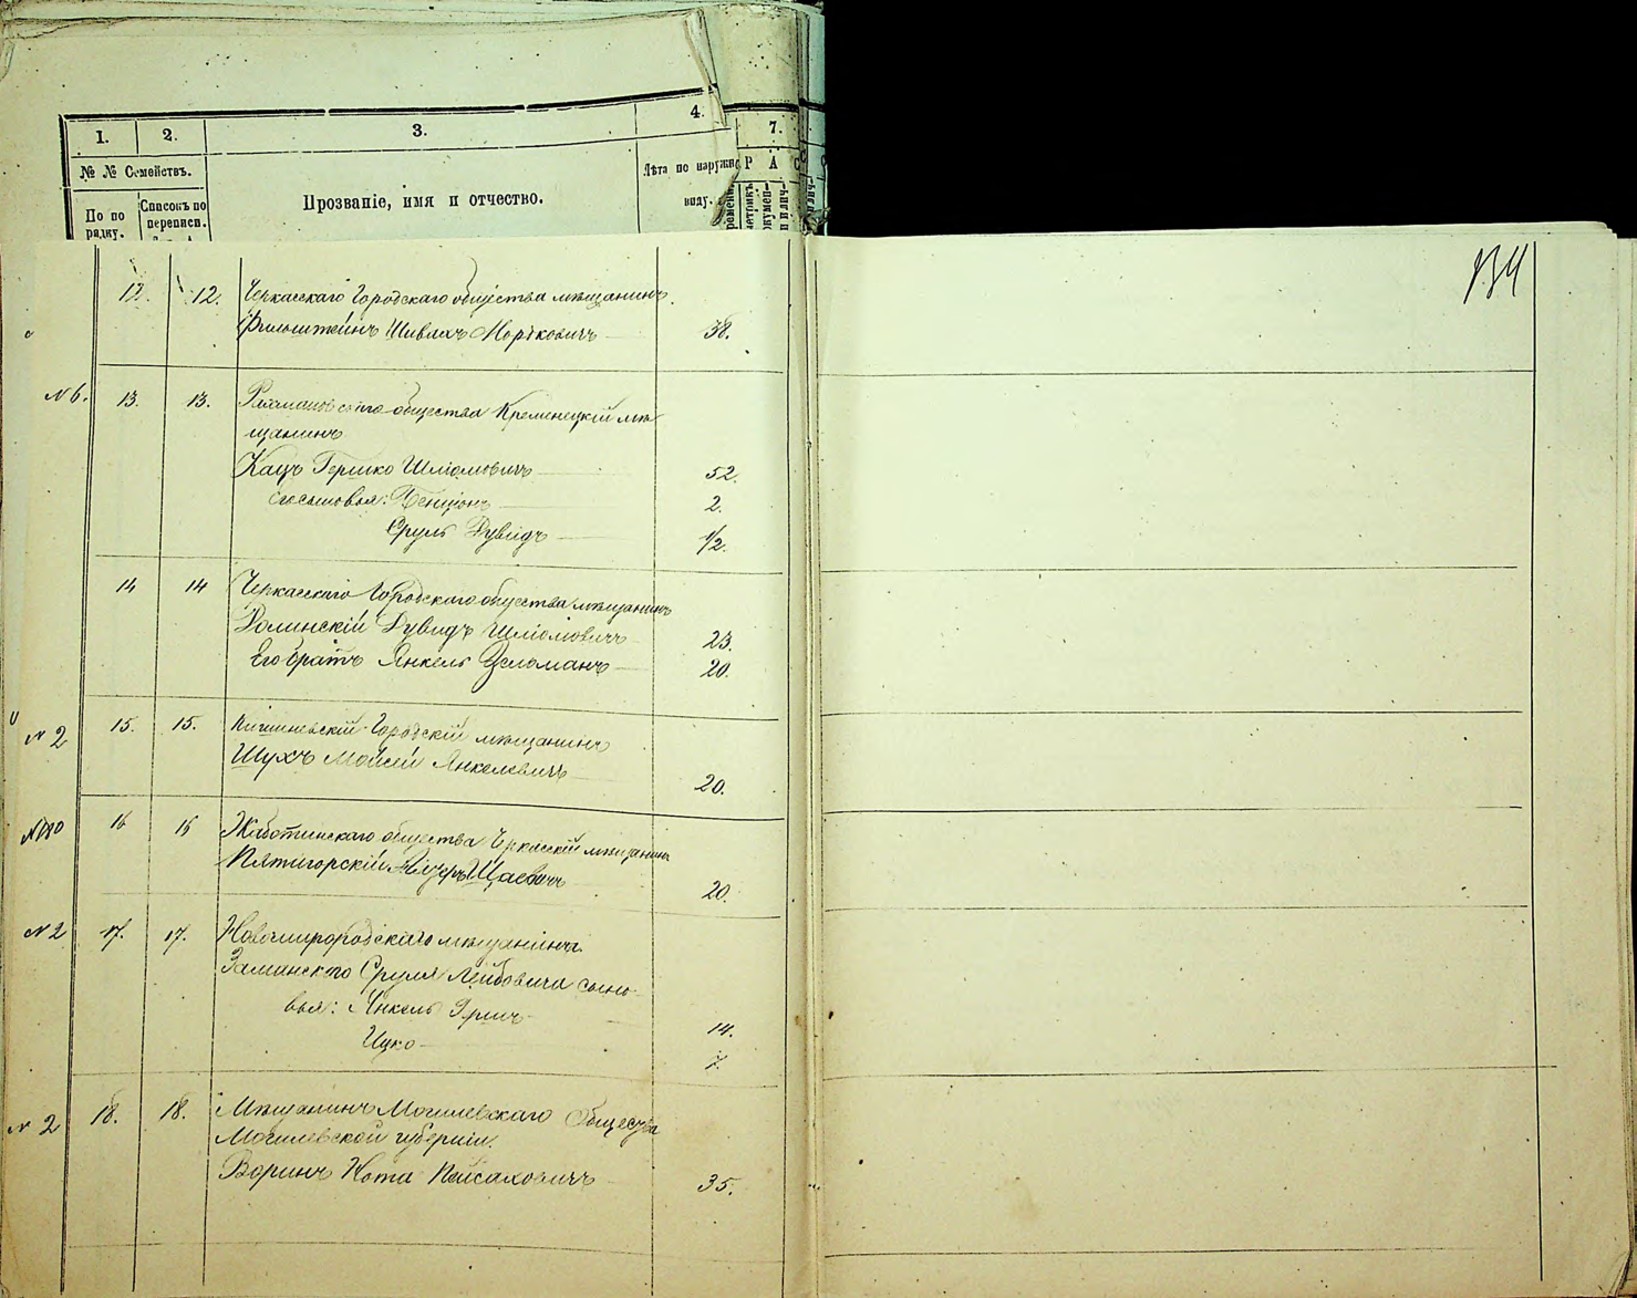 1. 2. 3. 4. 7.
№ № Семействъ.
По по рядку.
Списокъ по переписи.
Прозваніе, имя и отчество.
Лѣта по наружно
виду.
Р А С
134
12. 12. Черкасскаго Городскаго общества мѣщанинъ
Шивахъ Мордковичъ 38.
N 6. 13. 13. общества Кременецкій мѣ
щанинъ
Кацъ Гершко Шліомовичъ 52.
сыновья: Бенціонъ 2.
Сруль Дувидъ 1/2.
14 14 Черкасскаго Городскаго общества мѣщанинъ
Долинскій Дувидъ Шліомовичъ 23.
Его братъ Янкель Зельманъ 20.
N 2 15. 15. Кишиневскій Городскій мѣщанинъ
Шухъ Мойсей Янкелевичъ 20.
16 16 Жаботинскаго общества Черкасскій мѣщанинъ
Пятигорскій 20.
N 2 17. 17. Новомиргородскаго мѣщанина
Заманскаго Сруля Лейбовича сыно-
вья: Янкель Гершъ 14.
Ицко
N 2 18. 18. Мѣщанинъ Могилевскаго Общества
Могилевской губерніи.
Воринъ Нота Пейсаховичъ 35.